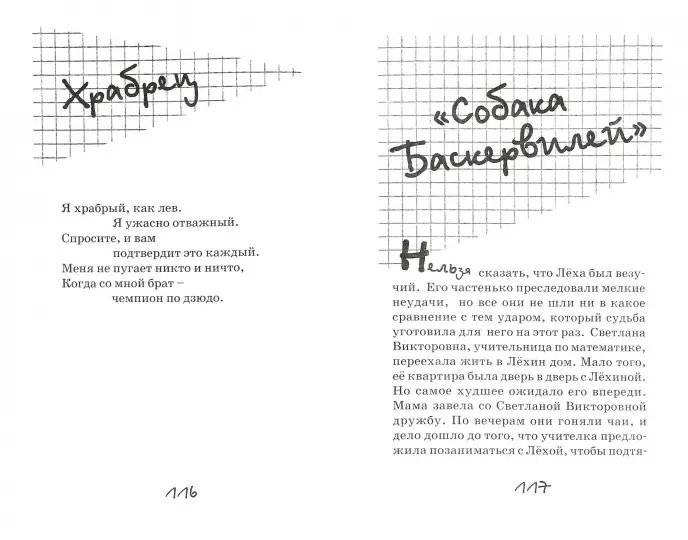 Храбрец
Я храбрый, как лев.
Я ужасно отважный.
Спросите, и вам
подтвердит это каждый.
Меня не пугает никто и ничто,
Когда со мной брат –
чемпион по дзюдо.
116
«Собака
Баскервилей»
Нельзя сказать, что Лёха был везу-
чий. Его частенько преследовали мелкие
неудачи, но все они не шли ни в какое
сравнение с тем ударом, который судьба
уготовила для него на этот раз. Светлана
Викторовна, учительница по математике,
переехала жить в Лёхин дом. Мало того,
её квартира была дверь в дверь с Лёхиной.
Но самое худшее ожидало его впереди.
Мама завела со Светланой Викторовной
дружбу. По вечерам они гоняли чаи, и
дело дошло до того, что учителка предло-
жила позаниматься с Лёхой, чтобы подтя-
117